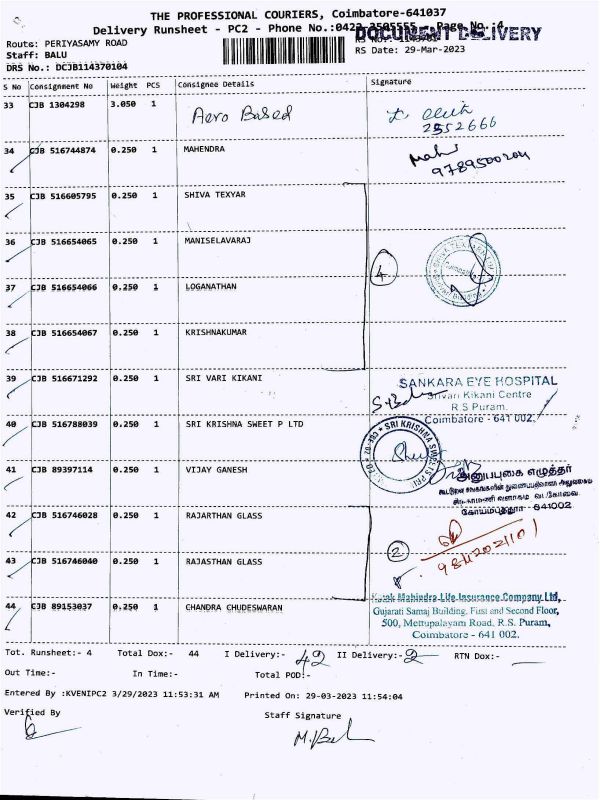 THE PROFESSIONAL COURIERS, Coimbatore-641037
Delivery Runsheet - PC2 - Phone No.:0422 3505555 Page No.:4
DOCUMENT DELIVERY
Route: PERIYASAMY ROAD
Staff: BALU
RS Date: 29-Mar-2023
DRS No.: DCJB114370104
S No Consignment No Weight PCS Consignee Details Signature
33 CJB 1304298 3.050 1 Aero Based
2552666
34 CJB 516744874 0.250 1 MAHENDRA
35 CJB 516605795 0.250 1 SHIVA TEXYAR
36 CJB 516654065 0.250 1 MANISELAVARAJ
4
37 CJB 516654066 0.250 1 LOGANATHAN
38 CJB 516654067 0.250 1 KRISHNAKUMAR
39 CJB 516671292 0.250 1 SRI VARI KIKANI
SANKARA EYE HOSPITAL
Srivari Kikani Centre
R.S Puram,
Coimbatore - 641 002.
40 CJB 516788039 0.250 1 SRI KRISHNA SWEET P LTD
SRI KRISHNA SWEETS
41 CJB 89397114 0.250 1 VIJAY GANESH
எழுத்தர்
641002
42 CJB 516746028 0.250 1 RAJARTHAN GLASS
2
43 CJB 516746040 0.250 1 RAJASTHAN GLASS
44 CJB 89153037 0.250 1 CHANDRA CHUDESWARAN
Kotak Mahindra Life Insurance Company Ltd,
Gujarati Samaj Building, First and Second Floor,
500, Mettupalayam Road, R.S. Puram,
Coimbatore - 641 002.
Tot. Runsheet:- 4 Total Dox:- 44 I Delivery:- 42 II Delivery:- 2 RTN Dox:-
Out Time:- In Time:- Total POD:-
Entered By :KVENIPC2 3/29/2023 11:53:31 AM Printed On: 29-03-2023 11:54:04
Verified By Staff Signature